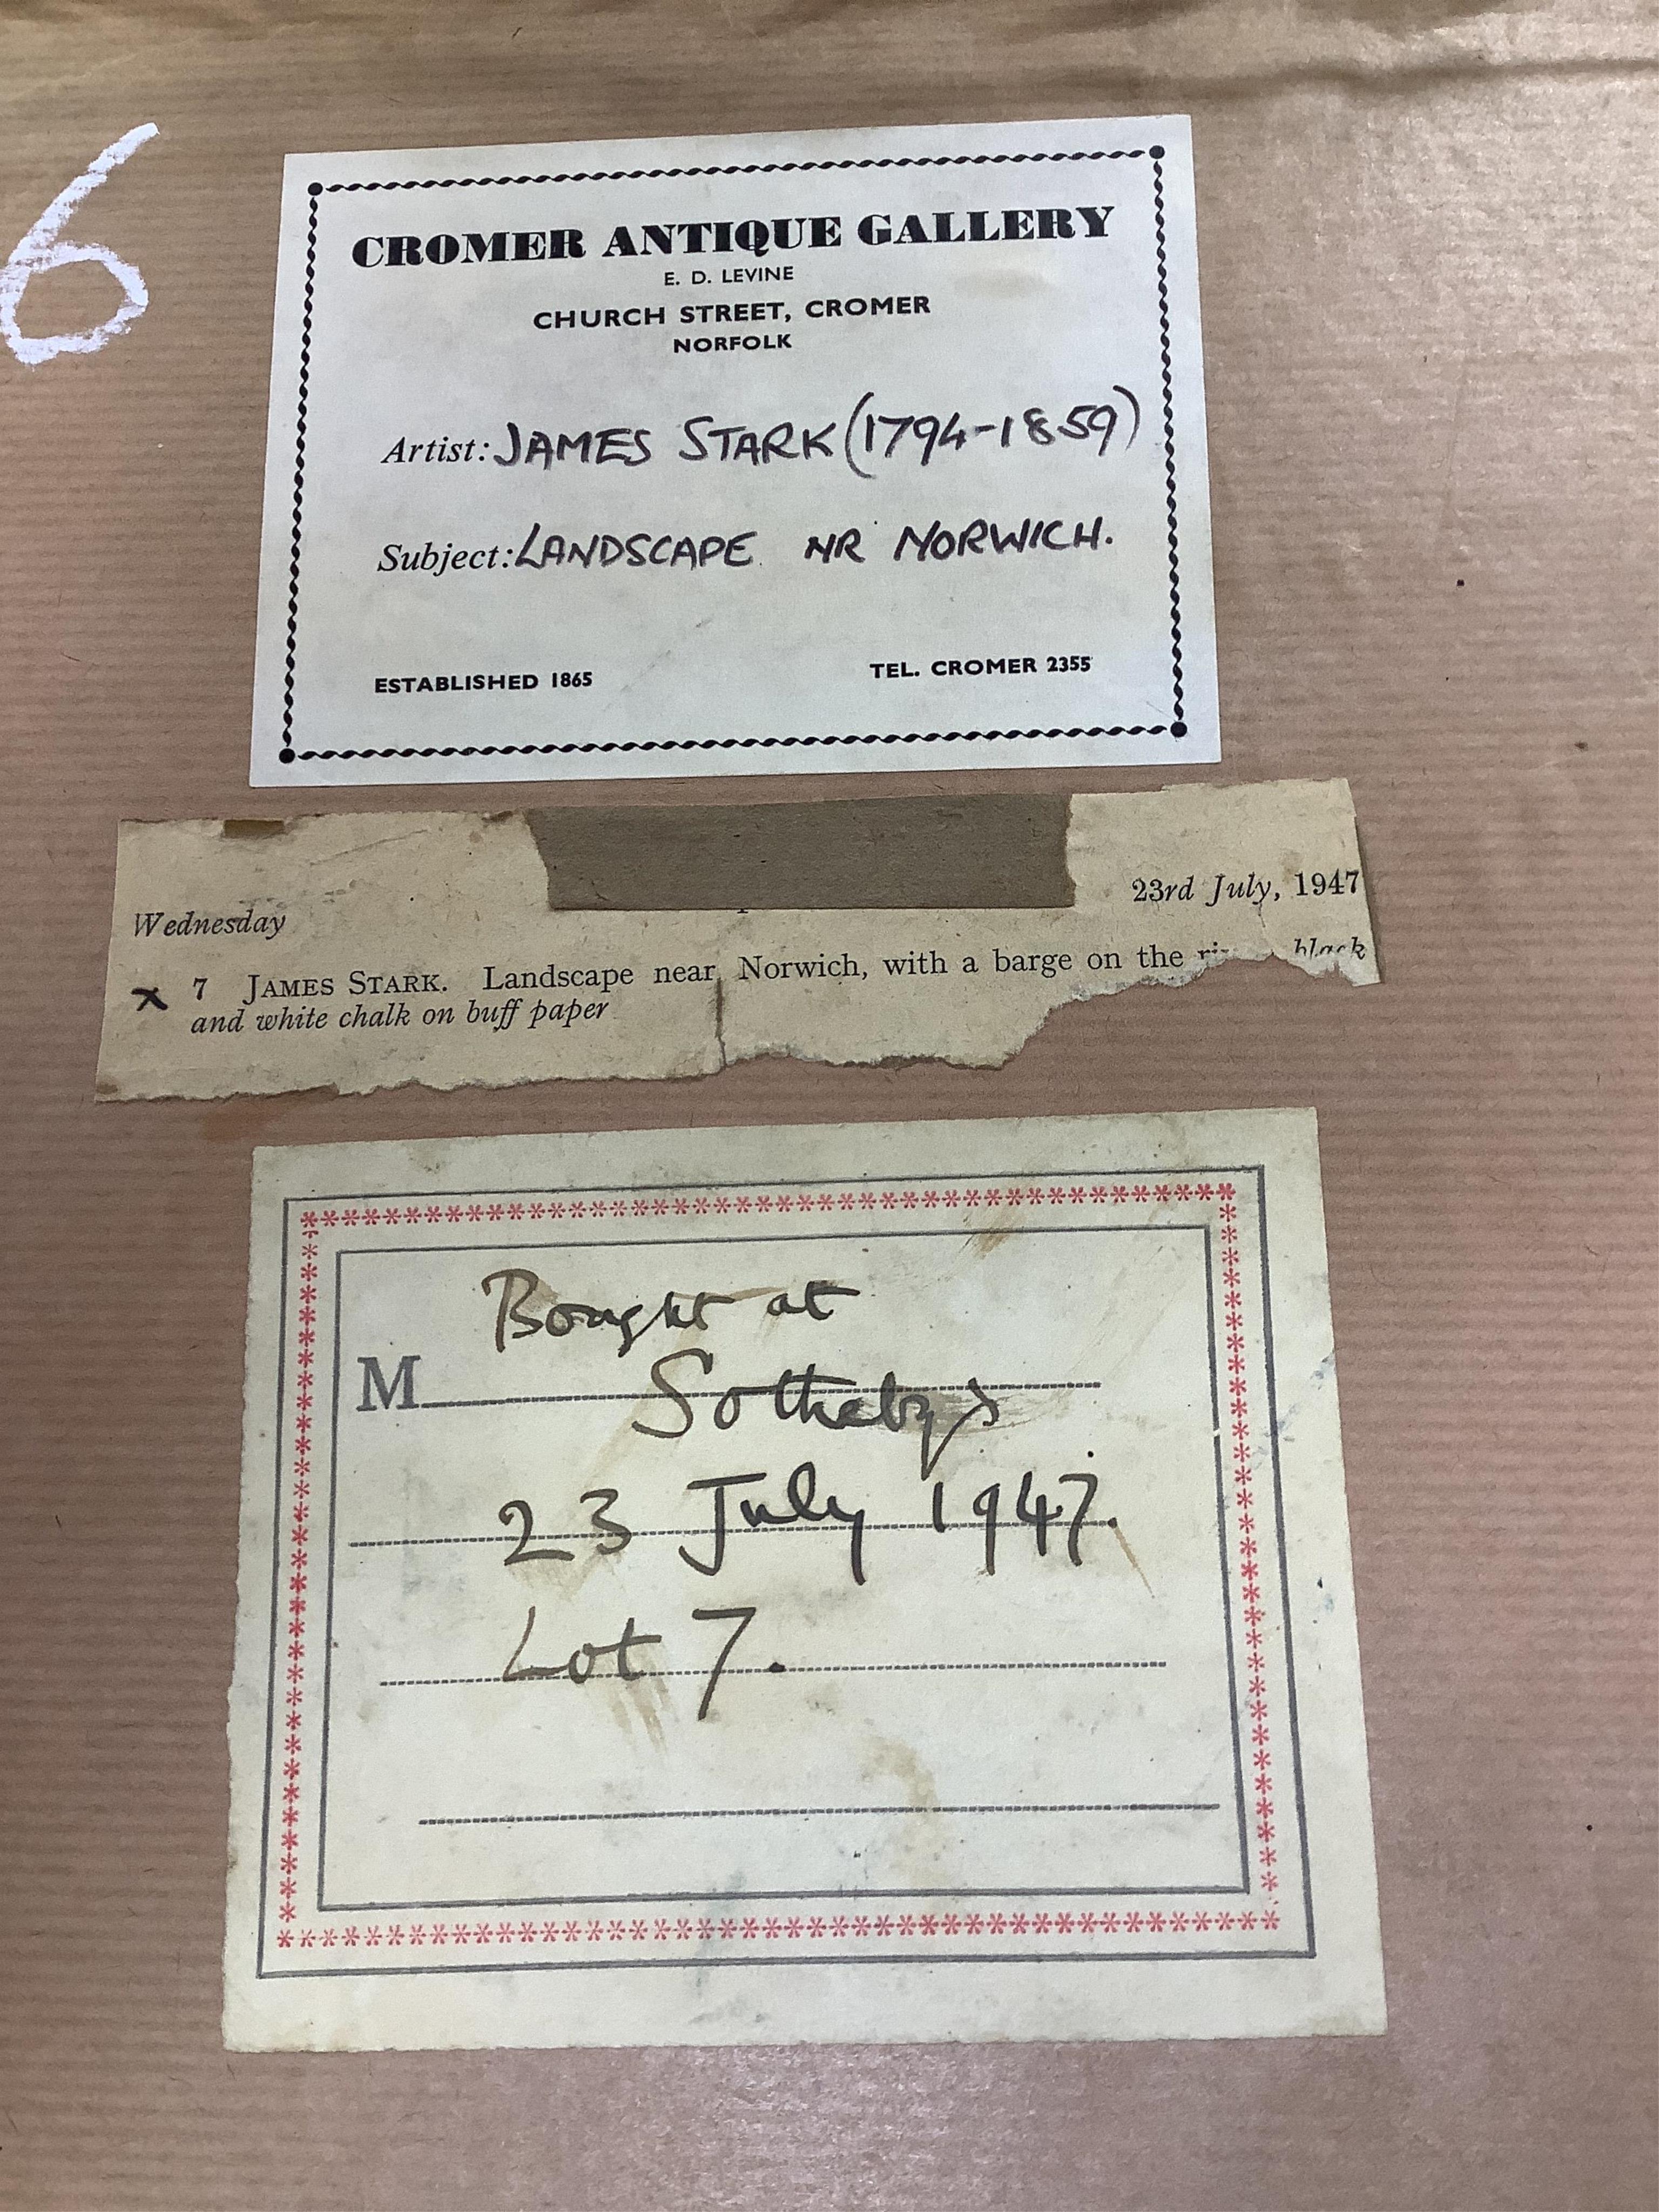 6
CROMER ANTIQUE GALLERY
E. D. LEVINE
CHURCH STREET, CROMER
NORFOLK
Artist: JAMES STARK (1794-1859)
Subject: LANDSCAPE NR NORWICH.
ESTABLISHED 1865 TEL. CROMER 2355
Wednesday 23rd July, 1947
x 7 JAMES STARK. Landscape near Norwich, with a barge on the black
and white chalk on buff paper
Bought at
M Sothebys
23 July 1947.
Lot 7.